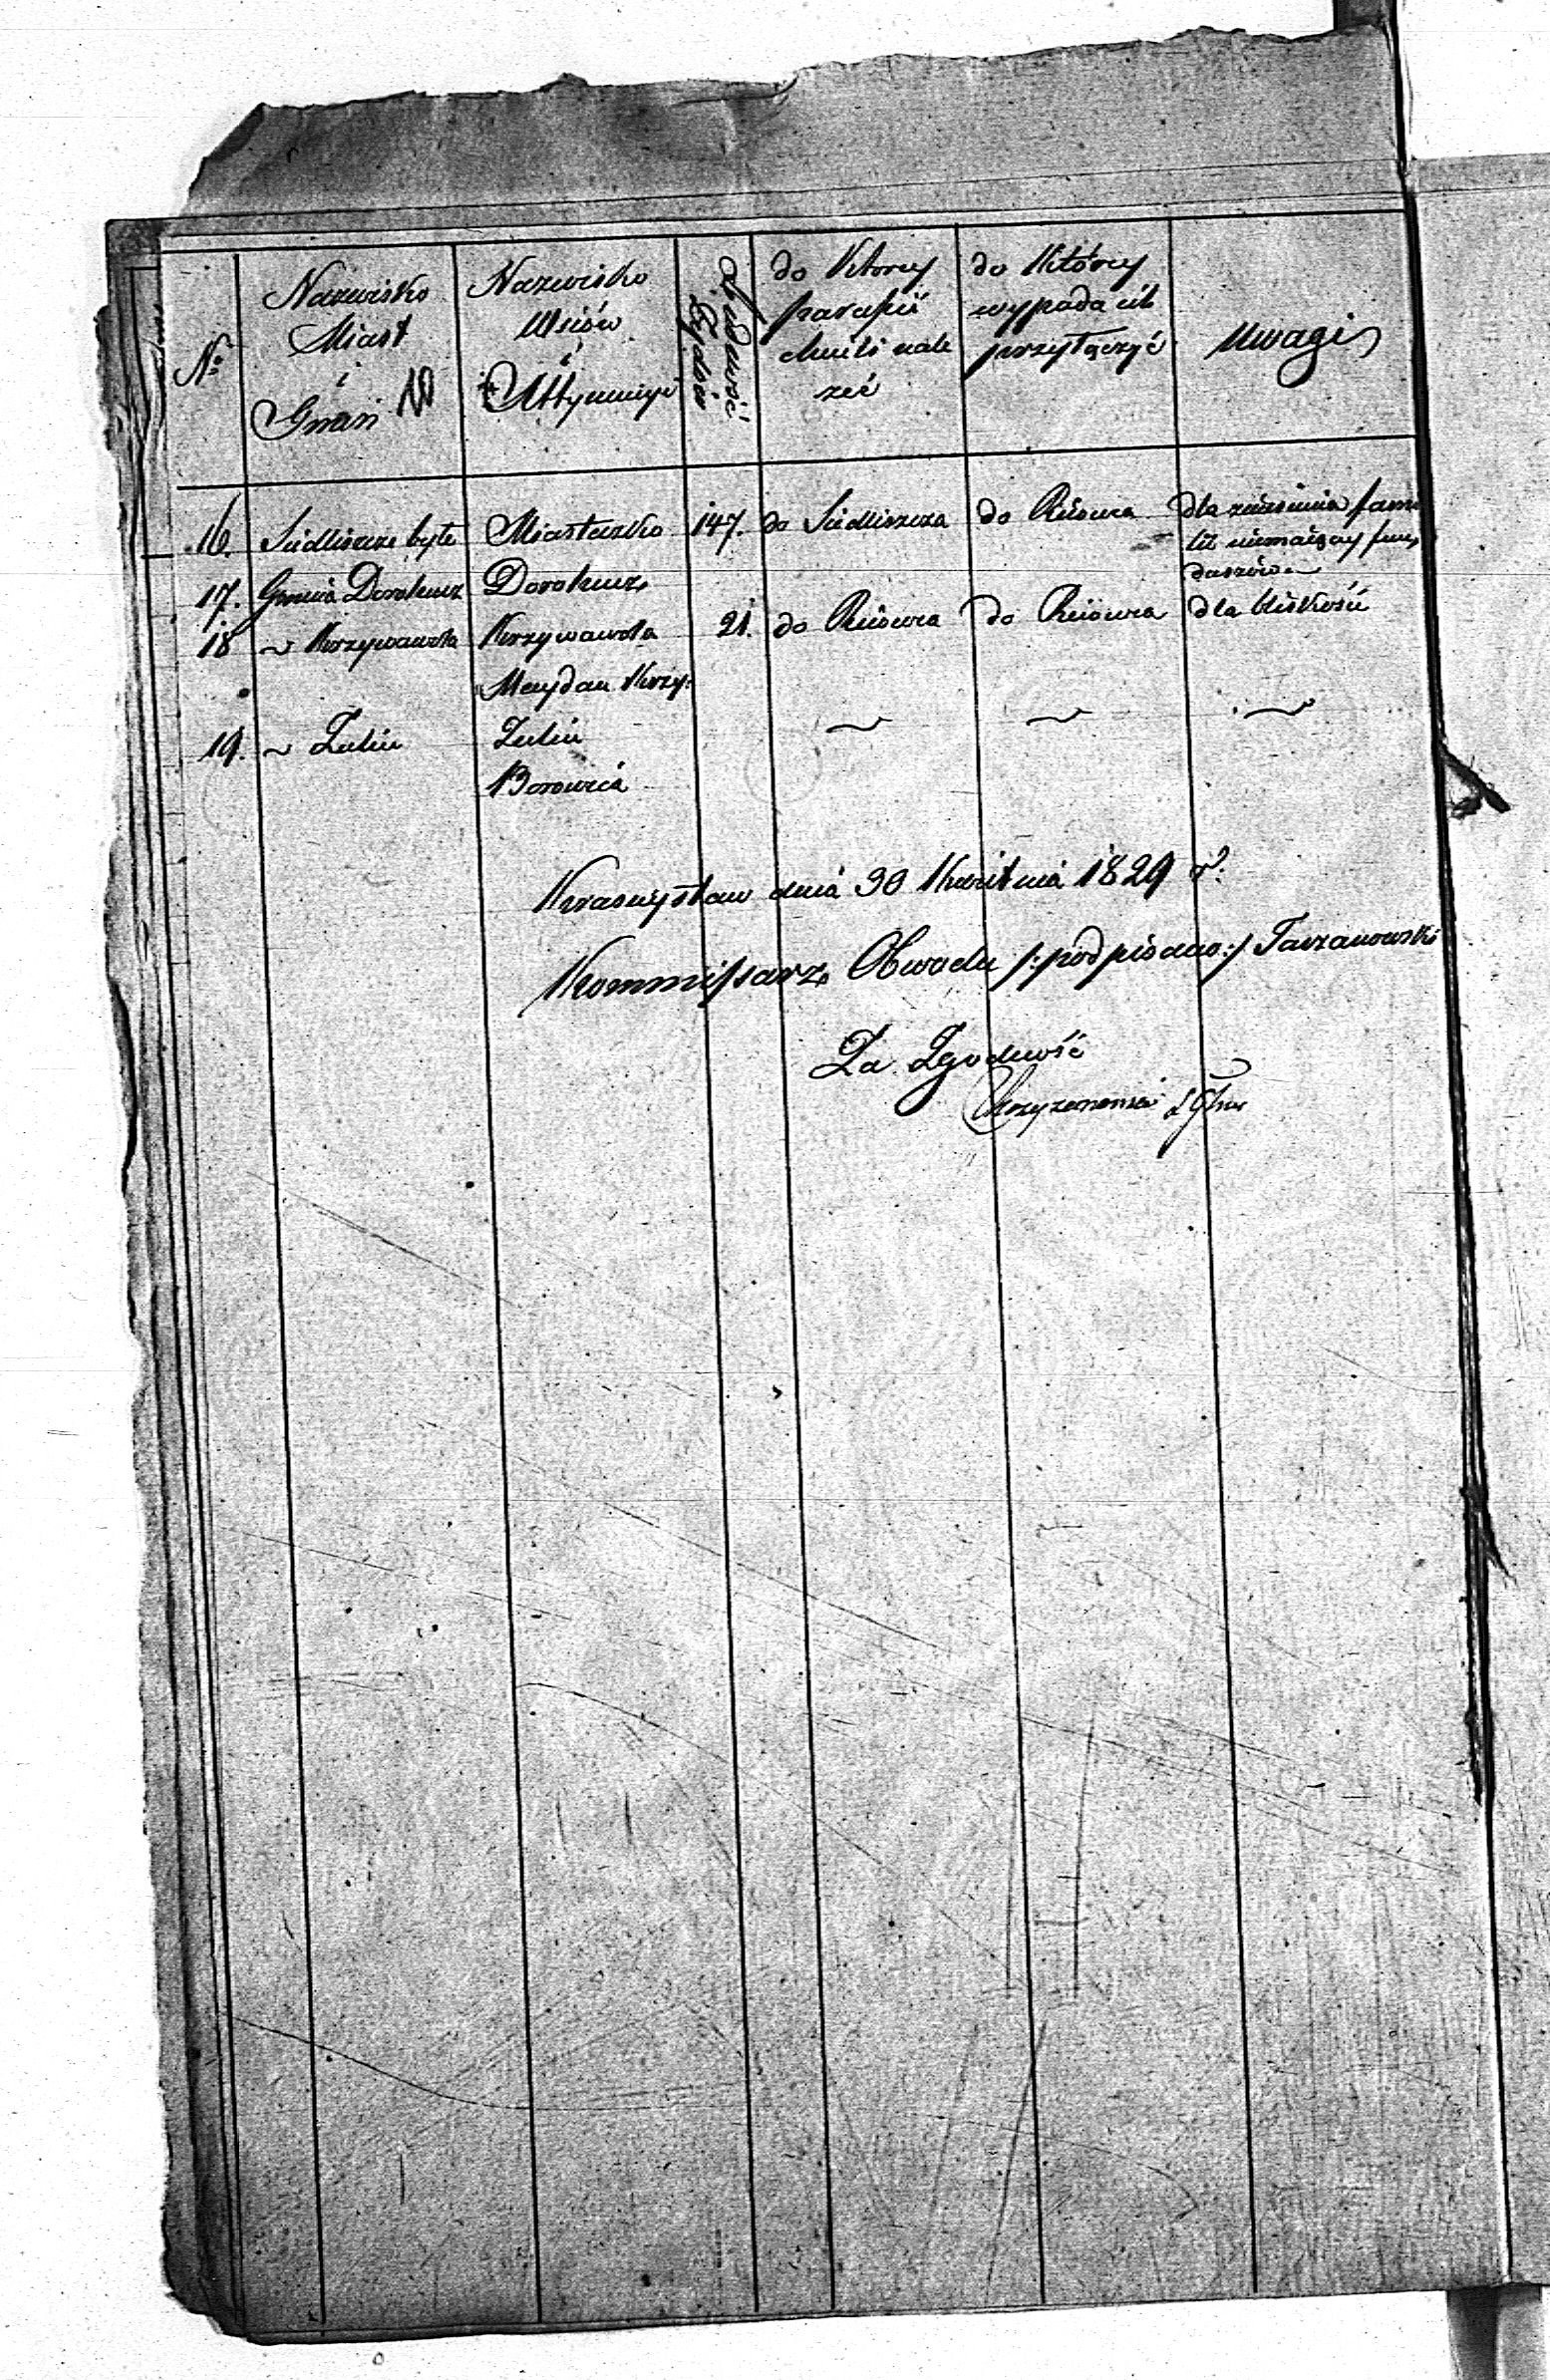 Nr
Nazwisko
Miast
i
Gmin
Nazwisko
Wsiów
i
Attynencyi
Ludność
Żydów
do Ktorey
parafii
chcieli nale
żeć
do Którey
wypada ich
przyłączyć
Uwagi
16. Siedliszcze byłe Miasteczko 147. do Siedliszcza do Reiowca dla zniesienia fami
lii niemaiący fun
duszów
17. Gmina Dorohucz Dorohucz
18 ~ Krzywawola Krzywawola 21. do Reiowca do Reiowca dla bliskości
Maydan Krzy:
19. ~ Zulin Zulin ~ ~ ~
Borowica
Krasnystaw dnia 30 Kwietnia 1829 r.
Kommissarz Obwodu /:podpisano:/ Tarzanowski
Za Zgodność